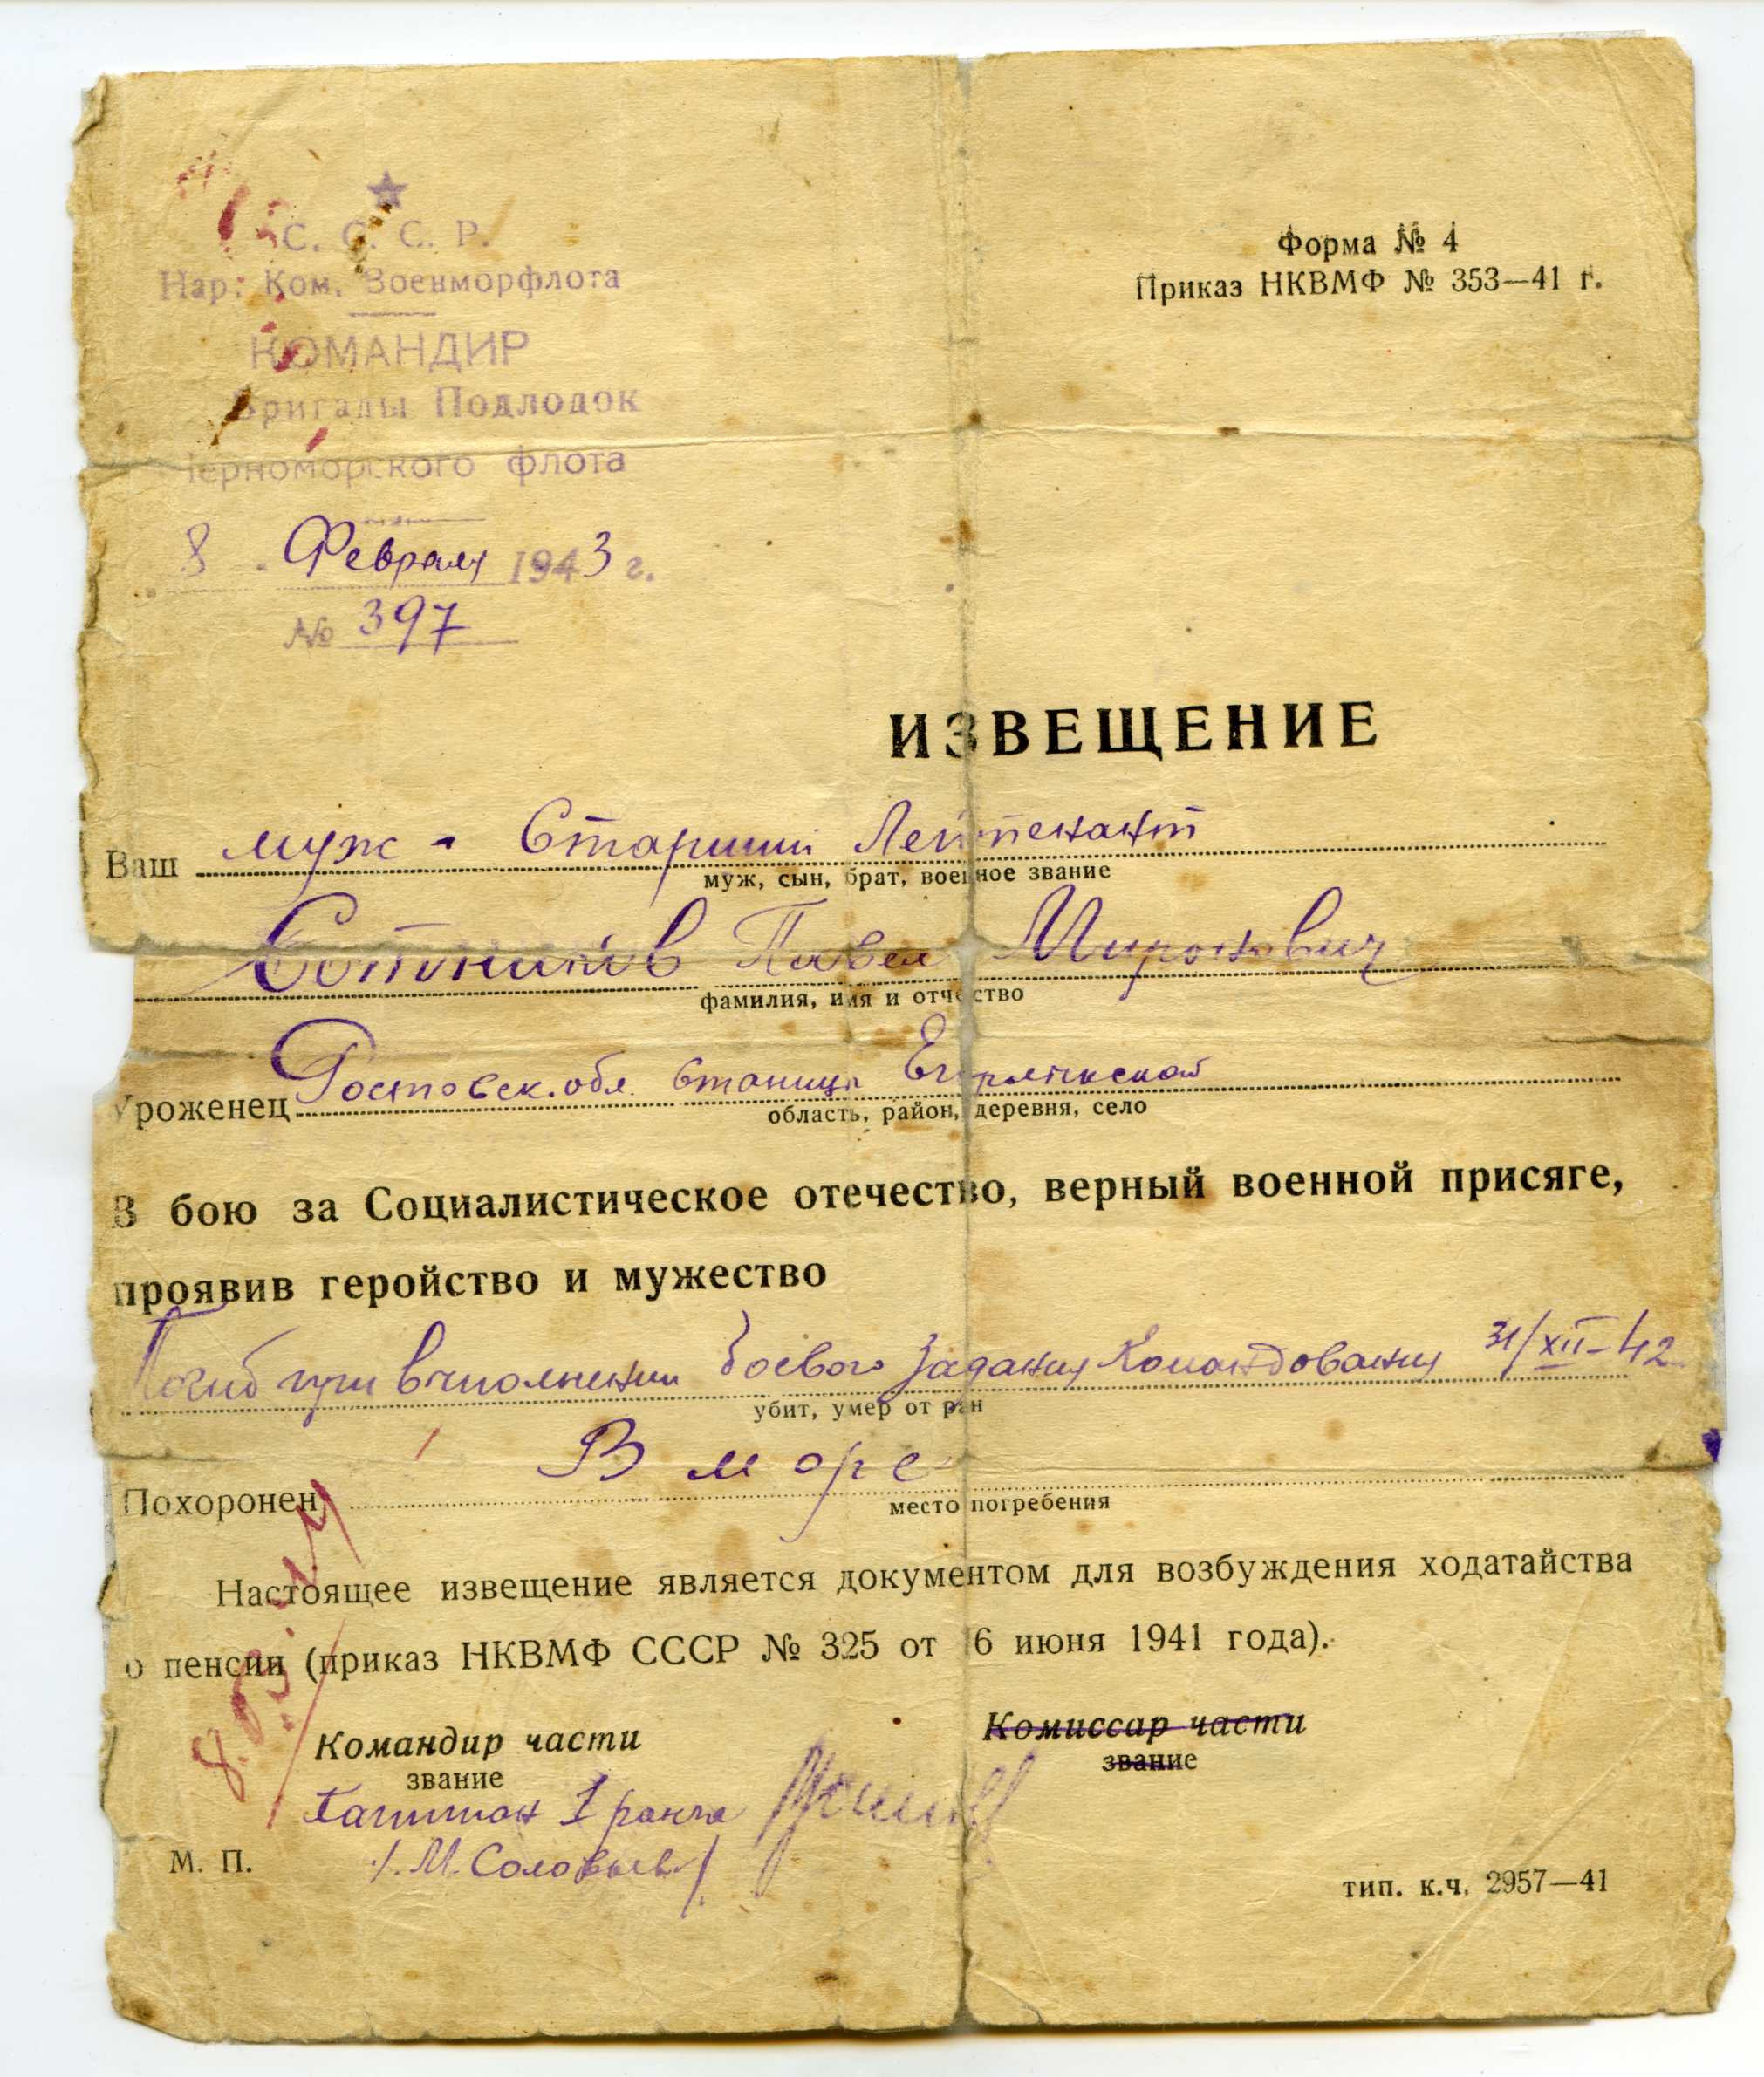 С. С. С. Р.
Нар. Ком. Военморфлота
КОМАНДИР
Бригады Подлодок
Черноморского флота
8 . Февраля 1943 г.
№ 397
Форма № 4
Приказ НКВМФ № 353—41 г.
ИЗВЕЩЕНИЕ
Ваш муж - Старший Лейтенант
муж, сын, брат, военное звание
Сотников Павел Миронович
фамилия, имя и отчество
Уроженец Ростовск. обл. Станица Егорлыкской
область, район, деревня, село
В бою за Социалистическое отечество, верный военной присяге,
проявив геройство и мужество
Погиб при выполнении боевого задания Командования 31/XII-42
убит, умер от ран
Похоронен В море
место погребения
Настоящее извещение является документом для возбуждения ходатайства
о пенсии (приказ НКВМФ СССР № 325 от 6 июня 1941 года).
Командир части
звание
Капитан 1 ранга
М. П. /. М. Соловьев /
Комиссар части
звание
тип. к.ч. 2957—41